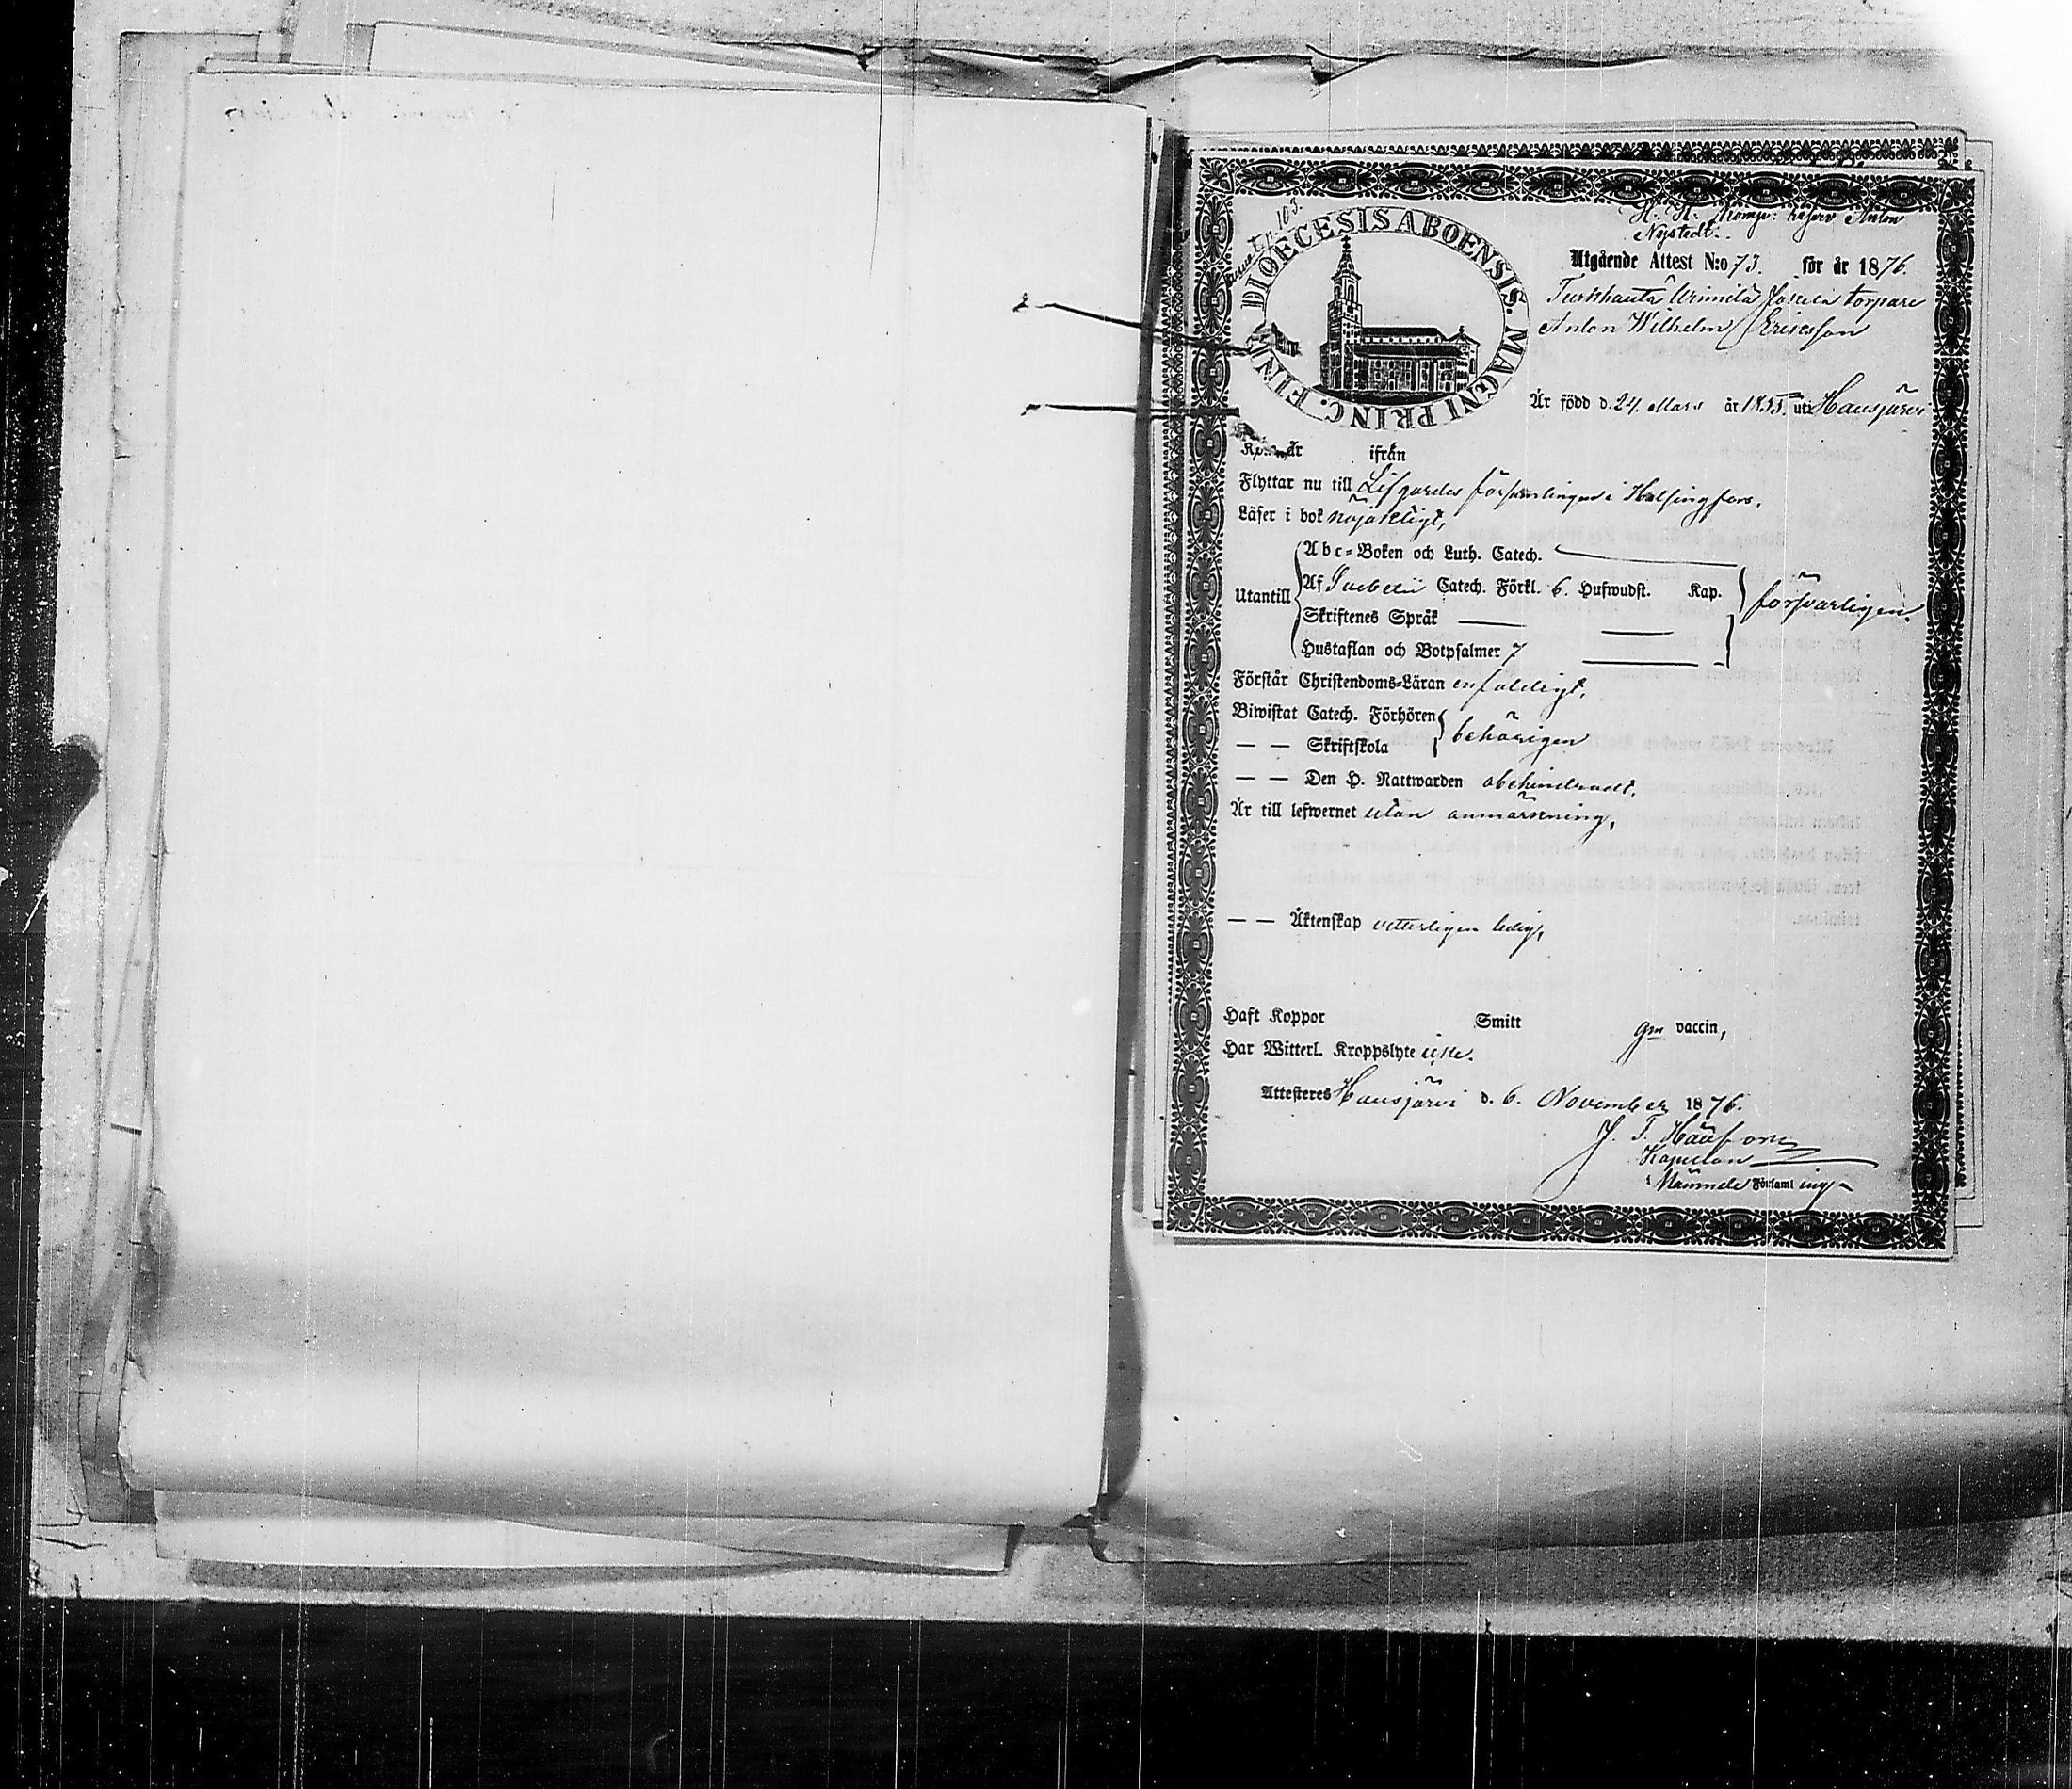 p. 103.
DIOECESIS ABOENSIS. MAGNI PRINC. FINL.
H. H. Komp: Anton
Nystedt.
Utgående Attest N:o 73. för år 1876.
Turkhauta torpare
Anton Wilhelm Ericsson
Är född d. 24. Mars år 1855. uti Hausjärvi
Kom år ifrån
Flyttar nu till Lifgardes församlingen i Helsingfors.
Läser i bok nöjaktligt,
Utantill
Abc-Boken och Luth. Catech.
Af Svebelii Catech. Förkl. 6. Hufwudst. Kap.
försvarligen.
Skriftenes Språk
Hustaflan och Botpsalmer 7
Förstår Christendoms-Läran enfaldigt.
Biwistat Catech. Förhören
— — Skriftskola
behörigen
— — Den H. Nattwarden obehindradt.
Är till lefwernet utan anmärkning,
— — Äktenskap vetterligen ledig,
Haft Koppor Smitt gm vaccin,
Har Witterl. Kroppslyte icke.
Attesteres Hausjärvi d. 6. November 1876.
J. F.
Kapellan
i Församling